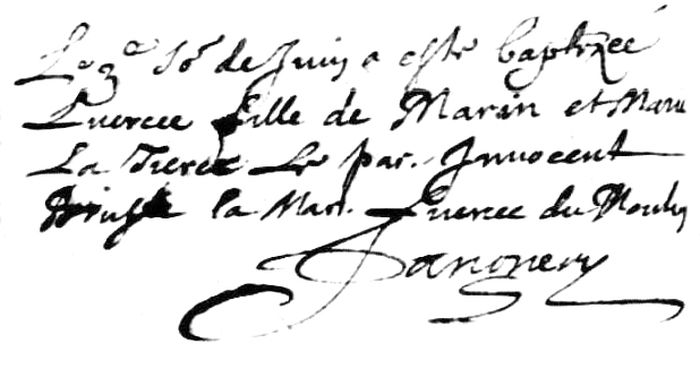 Le 3e Jor de Juin a este baptizeé
Lucrece fille de Marin et Marie
La Tierce Le par. Innocent
la Mar. Lucrece du Moulin